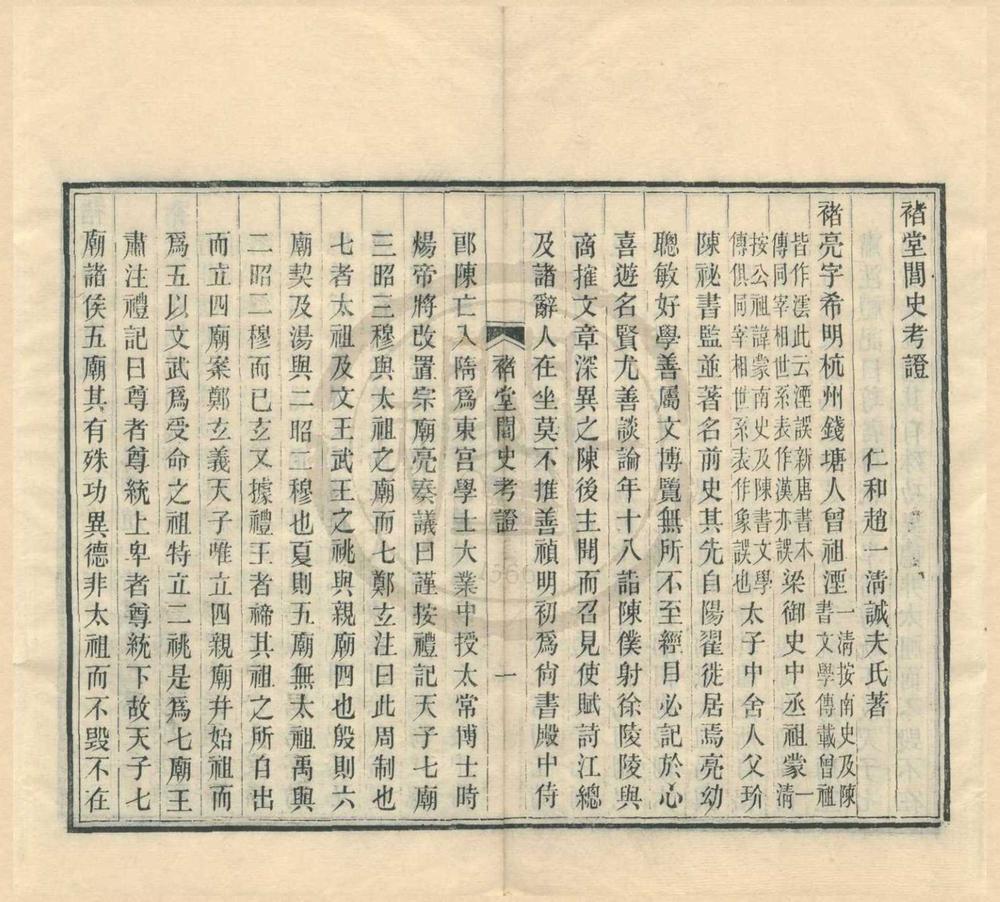 褚堂閭史考證
仁和趙一清誠夫氏著
褚亮字希明杭州錢塘人曾祖湮一清按南史及陳書文學傳載曾祖
皆作澐此云湮誤新唐書本傳同宰相世系表作漢亦誤梁御史中丞祖蒙一清
按公祖諱蒙南史及陳書文學傳俱同宰相世系表作象誤也太子中舍人父玠
陳祕書監並著名前史其先自陽翟徙居焉亮幼
聰敏好學善屬文博覽無所不至經目必記於心
喜遊名賢尤善談論年十八詣陳僕射徐陵陵與
商搉文章深異之陳後主聞而召見使賦詩江總
及諸辭人在坐莫不推善禎明初爲尙書殿中侍
褚堂閭史考證 一
郎陳亡入隋爲東宮學士大業中授太常博士時
煬帝將改置宗廟亮奏議曰謹按禮記天子七廟
三昭三穆與太祖之廟而七鄭玄注曰此周制也
七者太祖及文王武王之祧與親廟四也殷則六
廟契及湯與二昭二穆也夏則五廟無太祖禹與
二昭二穆而已玄又據禮王者禘其祖之所自出
而立四廟案鄭玄義天子唯立四親廟幷始祖而
爲五以文武爲受命之祖特立二祧是爲七廟王
肅注禮記曰尊者尊統上卑者尊統下故天子七
廟諸侯五廟其有殊功異德非太祖而不毀不在